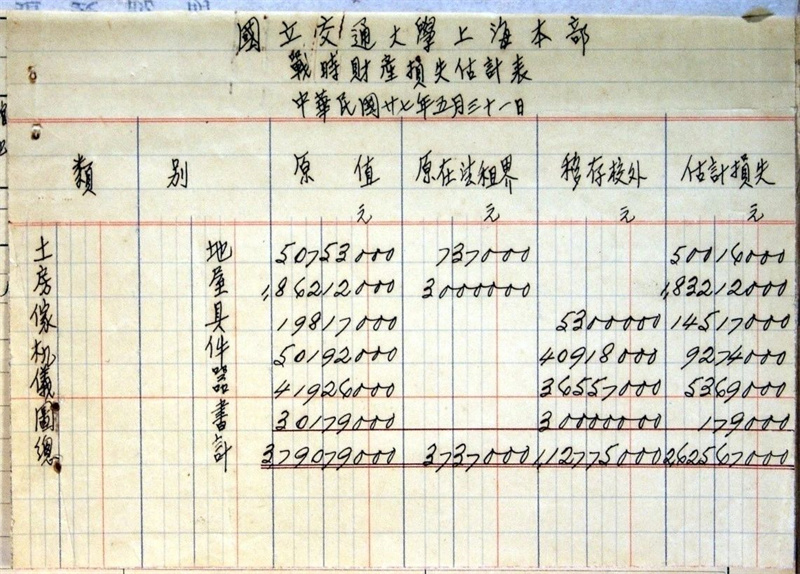 國立交通大學上海本部
戰時財產損失估計表
中華民國廿七年五月三十一日
類 別 原 值 原在法租界 移存校外 估計損失
元 元 元 元
土 地 50753000 737000 50016000
房 屋 1,86212000 3000000 1,83212000
傢 具 19817000 5300000 14517000
机 件 50192000 40918000 9274000
儀 器 41926000 36557000 5369000
圖 書 30179000 30000000 179000
總 計 379079000 3737000 1,12775000 262567000